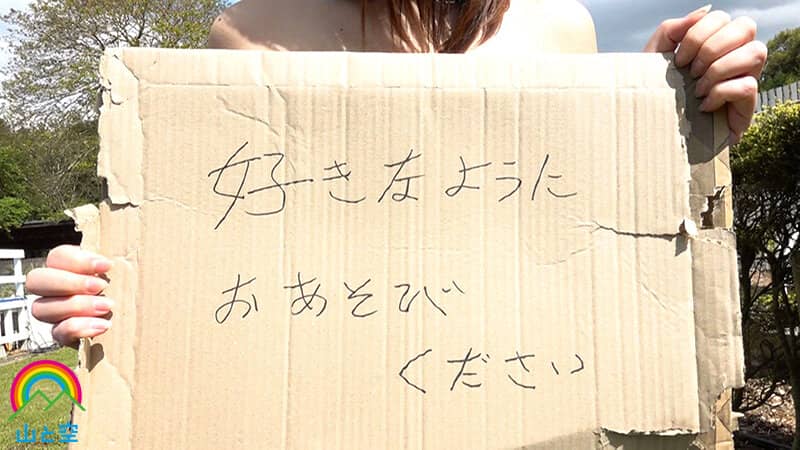 好きなように
おあそび
ください
山と空